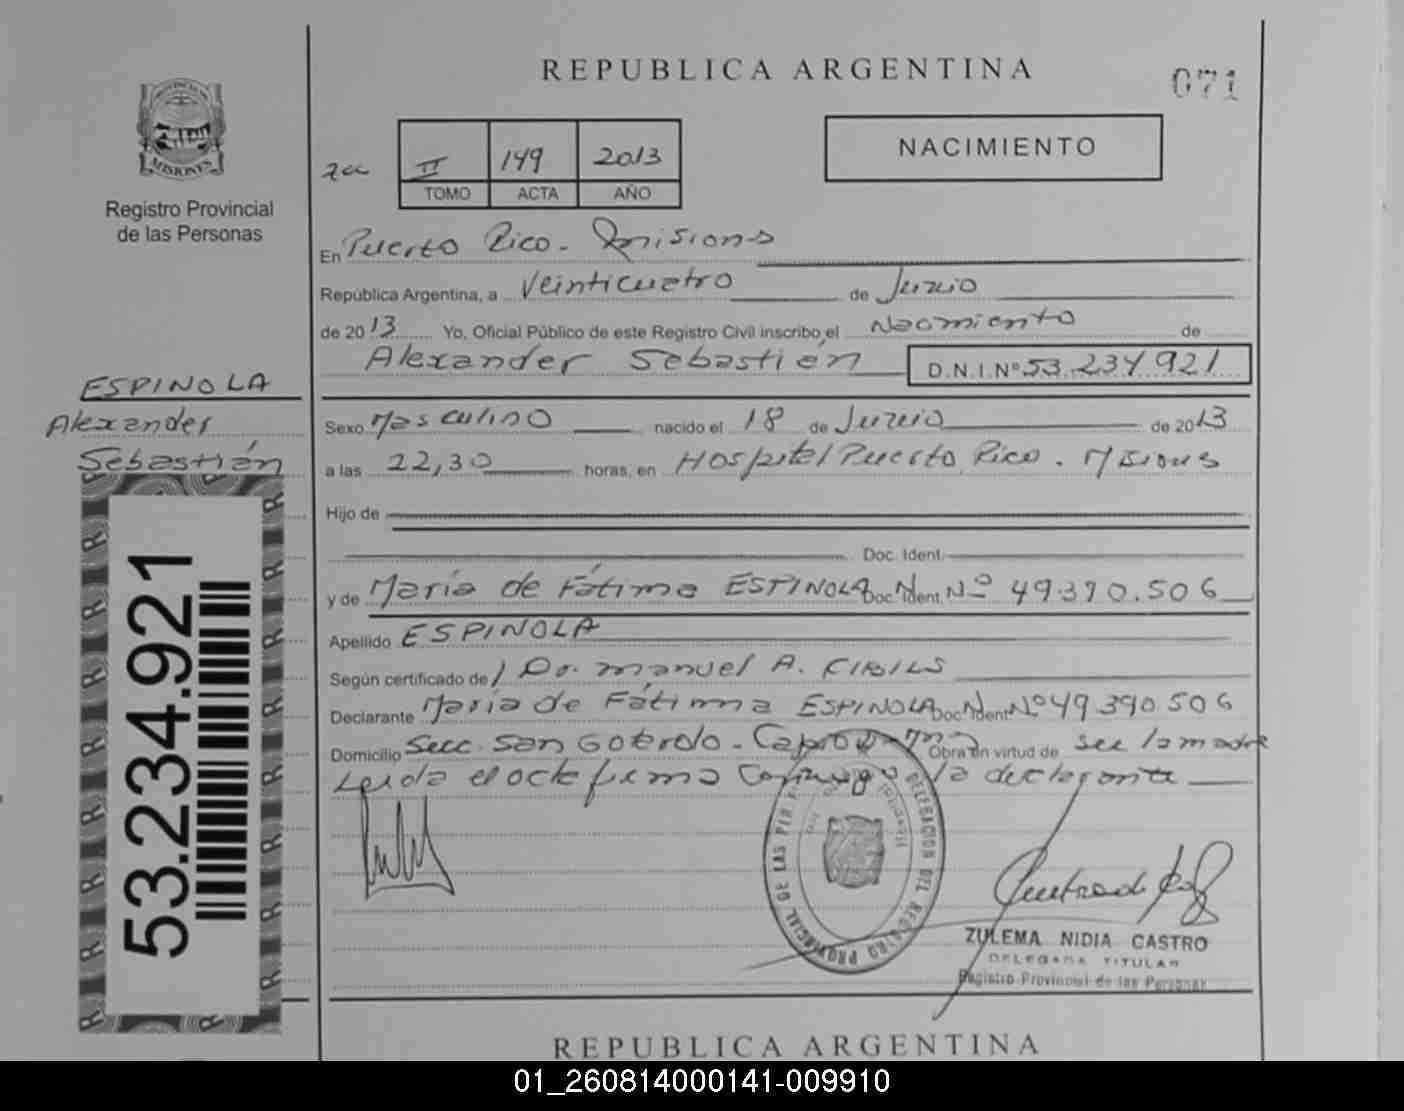 REPUBLICA ARGENTINA
071
PROVINCIA DE
MISIONES
Registro Provincial
de las Personas
II 149 2013
TOMO ACTA AÑO
NACIMIENTO
En Puerto Rico - Misiones
República Argentina, a Veinticuatro de Junio
de 2013 Yo, Oficial Público de este Registro Civil inscribo el Nacimiento de
Alexander Sebastián D.N.I.Nº 53.234.921
ESPINOLA
Alexander
Sebastián
53.234.921
Sexo Masculino nacido el 18 de Junio de 2013
a las 22,30 horas, en Hospital Puerto Rico. Misiones
Hijo de
Doc. Ident.
y de María de Fátima ESPINOLA Doc. Ident. Nº 49.390.506
Apellido ESPINOLA
Según certificado de Dr. Manuel A. CIBILS
Declarante María de Fátima ESPINOLA Doc. Ident Nº 49.390.506
Domicilio Secc. San Obra en virtud de ser la madre
Leida el acta firma la declarante
DELEGACION DEL REGISTRO PROVINCIAL DE LAS PER
ZULEMA NIDIA CASTRO
DELEGADA TITULAR
Registro Provincial de las Personas
REPUBLICA ARGENTINA
01_260814000141-009910